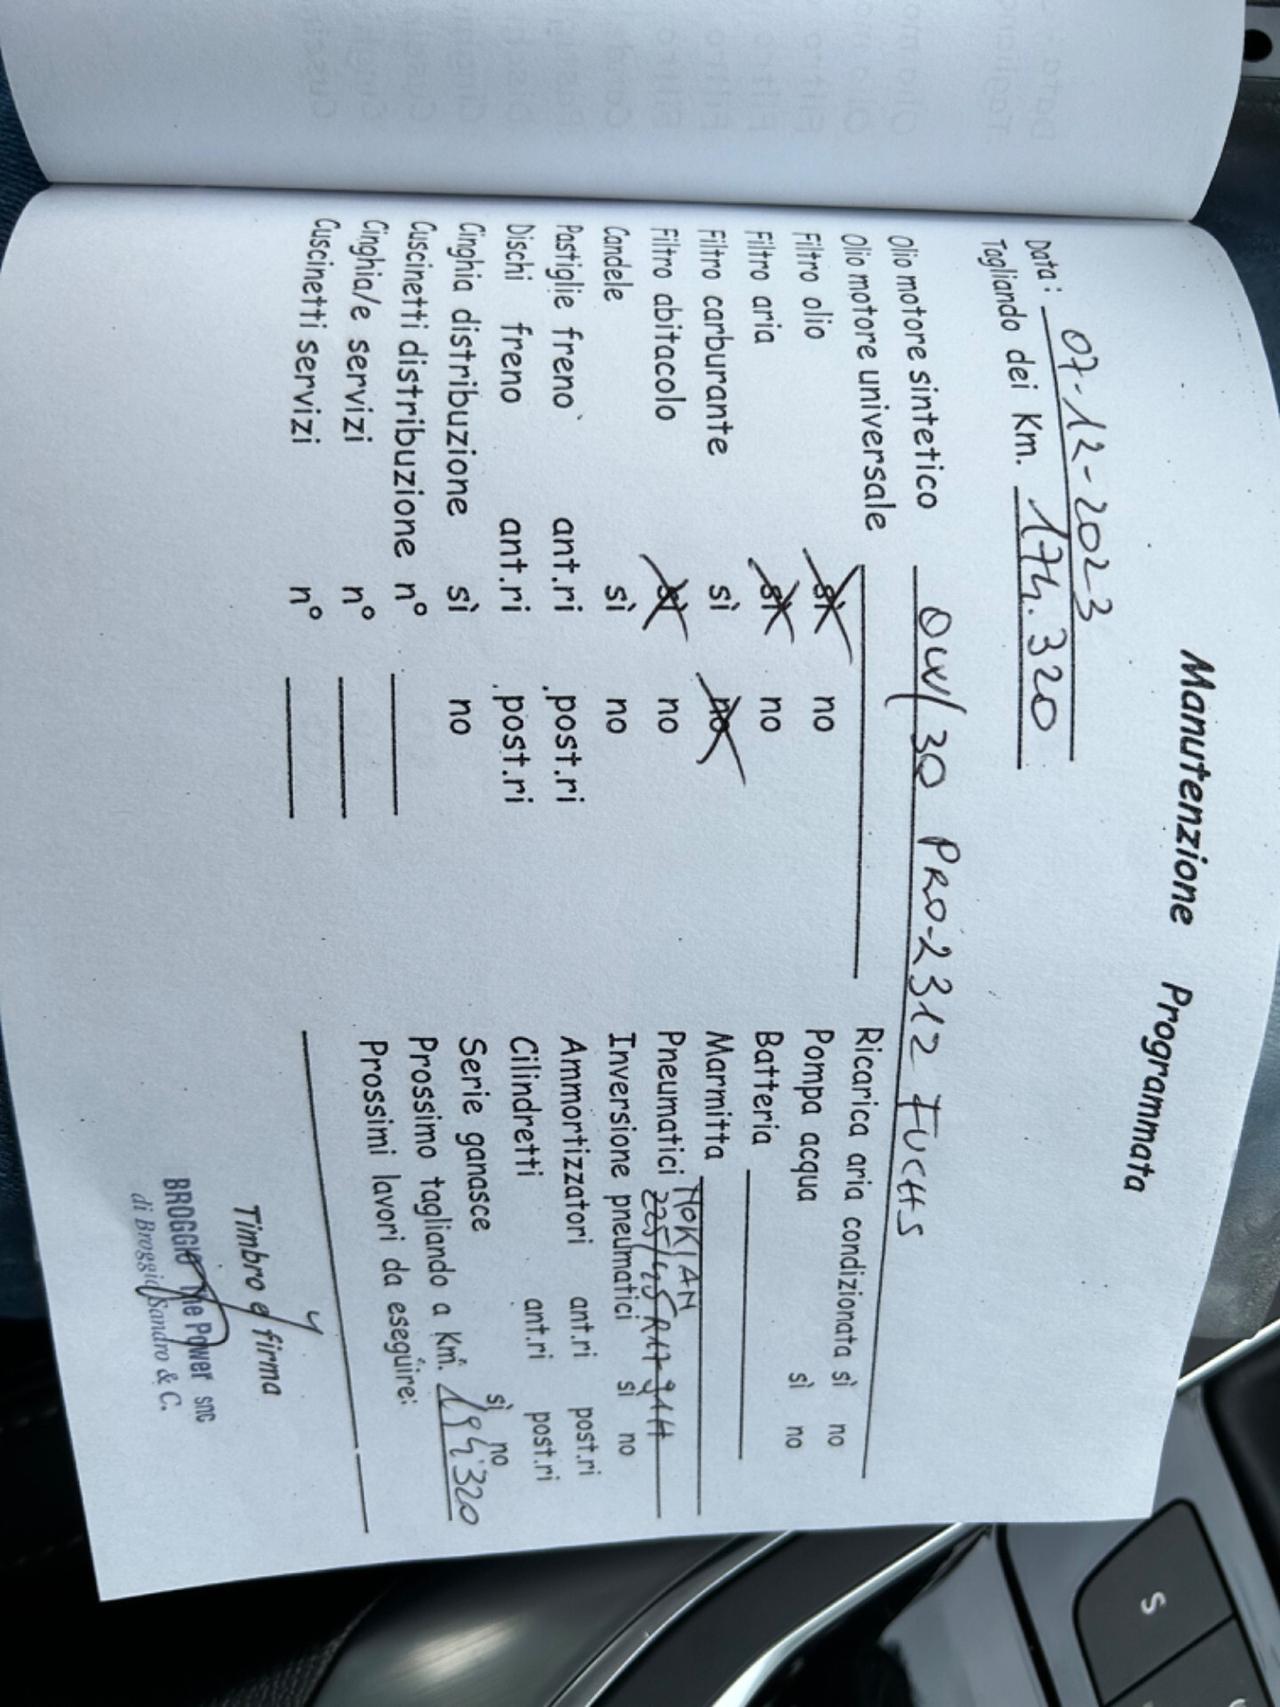 Manutenzione Programmata
Data: 07-12-2023
Tagliando dei Km. 174.320
Olio motore sintetico 0W/30 PRO-2312 FUCHS
Olio motore universale
Filtro olio sì no
Filtro aria sì no
Filtro carburante sì no
Filtro abitacolo sì no
Candele sì no
Pastiglie freno ant.ri post.ri
Dischi freno ant.ri post.ri
Cinghia distribuzione sì no
Cuscinetti distribuzione n°
Cinghia/e servizi n°
Cuscinetti servizi n°
Ricarica aria condizionata sì no
Pompa acqua sì no
Batteria
Marmitta
Pneumatici NOKIAN
225/45R17 91H
Inversione pneumatici sì no
Ammortizzatori ant.ri post.ri
Cilindretti ant.ri post.ri
Serie ganasce sì no
Prossimo tagliando a Km. 194.320
Prossimi lavori da eseguire:
Timbro e firma
BROGGIO The Power snc
di Broggio Sandro & C.
S